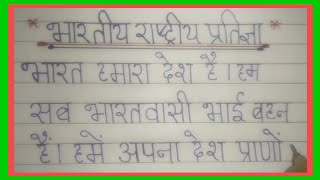 * भारतीय राष्ट्रीय प्रतिज्ञा *
भारत हमारा देश है। हम
सब भारतवासी भाई बहन
हैं। हमें अपना देश प्राणों